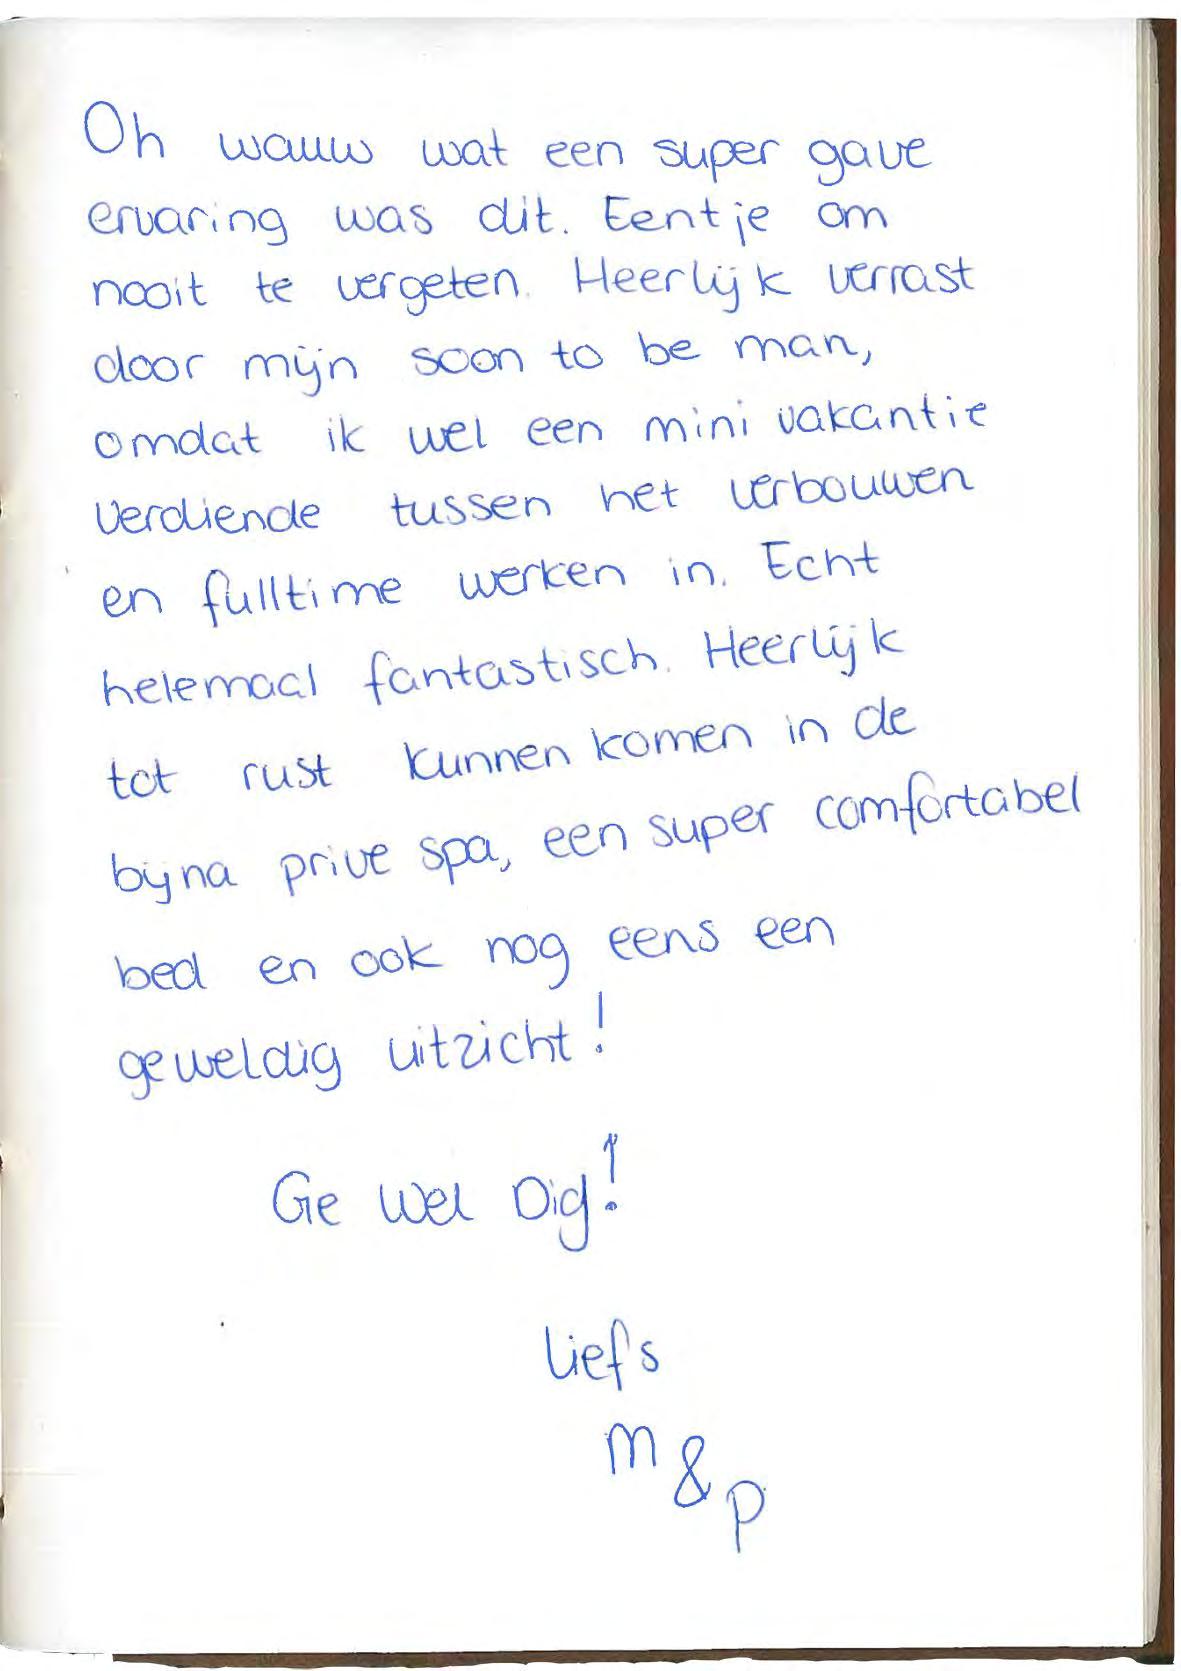 Oh wauw wat een super gave
ervaring was dit. Eentje om
nooit te vergeten. Heerlijk verrast
door mijn soon to be man,
omdat ik wel een mini vakantie
verdiende tussen het verbouwen
en fulltime werken in. Echt
helemaal fantastisch. Heerlijk
tot rust kunnen komen in de
bijna prive spa, een super comfortabel
bed en ook nog eens een
geweldig uitzicht!
Ge Wel Dig!
liefs
M & P